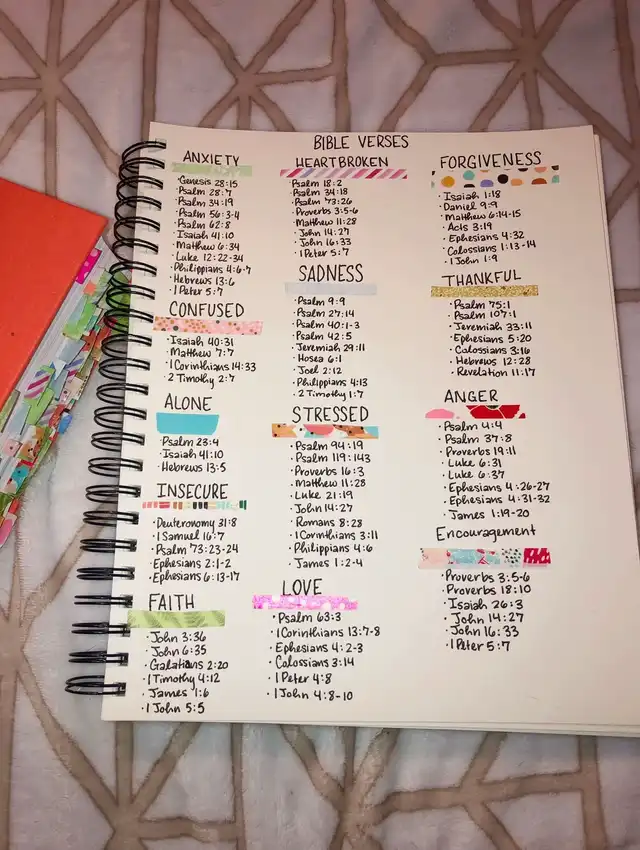 BIBLE VERSES
ANXIETY
·Genesis 28:15
·Psalm 28:7
·Psalm 34:19
·Psalm 56:3-4
·Psalm 62:8
·Isaiah 41:10
·Matthew 6:34
·Luke 12:22-34
·Philippians 4:6-7
·Hebrews 13:6
·1 Peter 5:7
CONFUSED
·Isaiah 40:31
·Matthew 7:7
·1 Corinthians 14:33
·2 Timothy 2:7
ALONE
·Psalm 23:4
·Isaiah 41:10
·Hebrews 13:5
INSECURE
·Deuteronomy 31:8
·1 Samuel 16:7
·Psalm 73:23-24
·Ephesians 2:1-2
·Ephesians 6:13-17
FAITH
·John 3:36
·John 6:35
·Galatians 2:20
·1 Timothy 4:12
·James 1:6
·1 John 5:5
HEARTBROKEN
·Psalm 18:2
·Psalm 34:18
·Psalm 73:26
·Proverbs 3:5-6
·Matthew 11:28
·John 14:27
·John 16:33
·1 Peter 5:7
SADNESS
·Psalm 9:9
·Psalm 27:14
·Psalm 40:1-3
·Psalm 42:5
·Jeremiah 29:11
·Hosea 6:1
·Joel 2:12
·Philippians 4:13
·2 Timothy 1:7
STRESSED
·Psalm 94:19
·Psalm 119:143
·Proverbs 16:3
·Matthew 11:28
·Luke 21:19
·John 14:27
·Romans 8:28
·1 Corinthians 3:11
·Philippians 4:6
·James 1:2-4
LOVE
·Psalm 63:3
·1 Corinthians 13:7-8
·Ephesians 4:2-3
·Colossians 3:14
·1 Peter 4:8
·1 John 4:8-10
FORGIVENESS
·Isaiah 1:18
·Daniel 9:9
·Matthew 6:14-15
·Acts 3:19
·Ephesians 4:32
·Colossians 1:13-14
·1 John 1:9
THANKFUL
·Psalm 75:1
·Psalm 107:1
·Jeremiah 33:11
·Ephesians 5:20
·Colossians 3:16
·Hebrews 12:28
·Revelation 11:17
ANGER
·Psalm 4:4
·Psalm 37:8
·Proverbs 19:11
·Luke 6:31
·Luke 6:37
·Ephesians 4:26-27
·Ephesians 4:31-32
·James 1:19-20
Encouragement
·Proverbs 3:5-6
·Proverbs 18:10
·Isaiah 26:3
·John 14:27
·John 16:33
·1 Peter 5:7